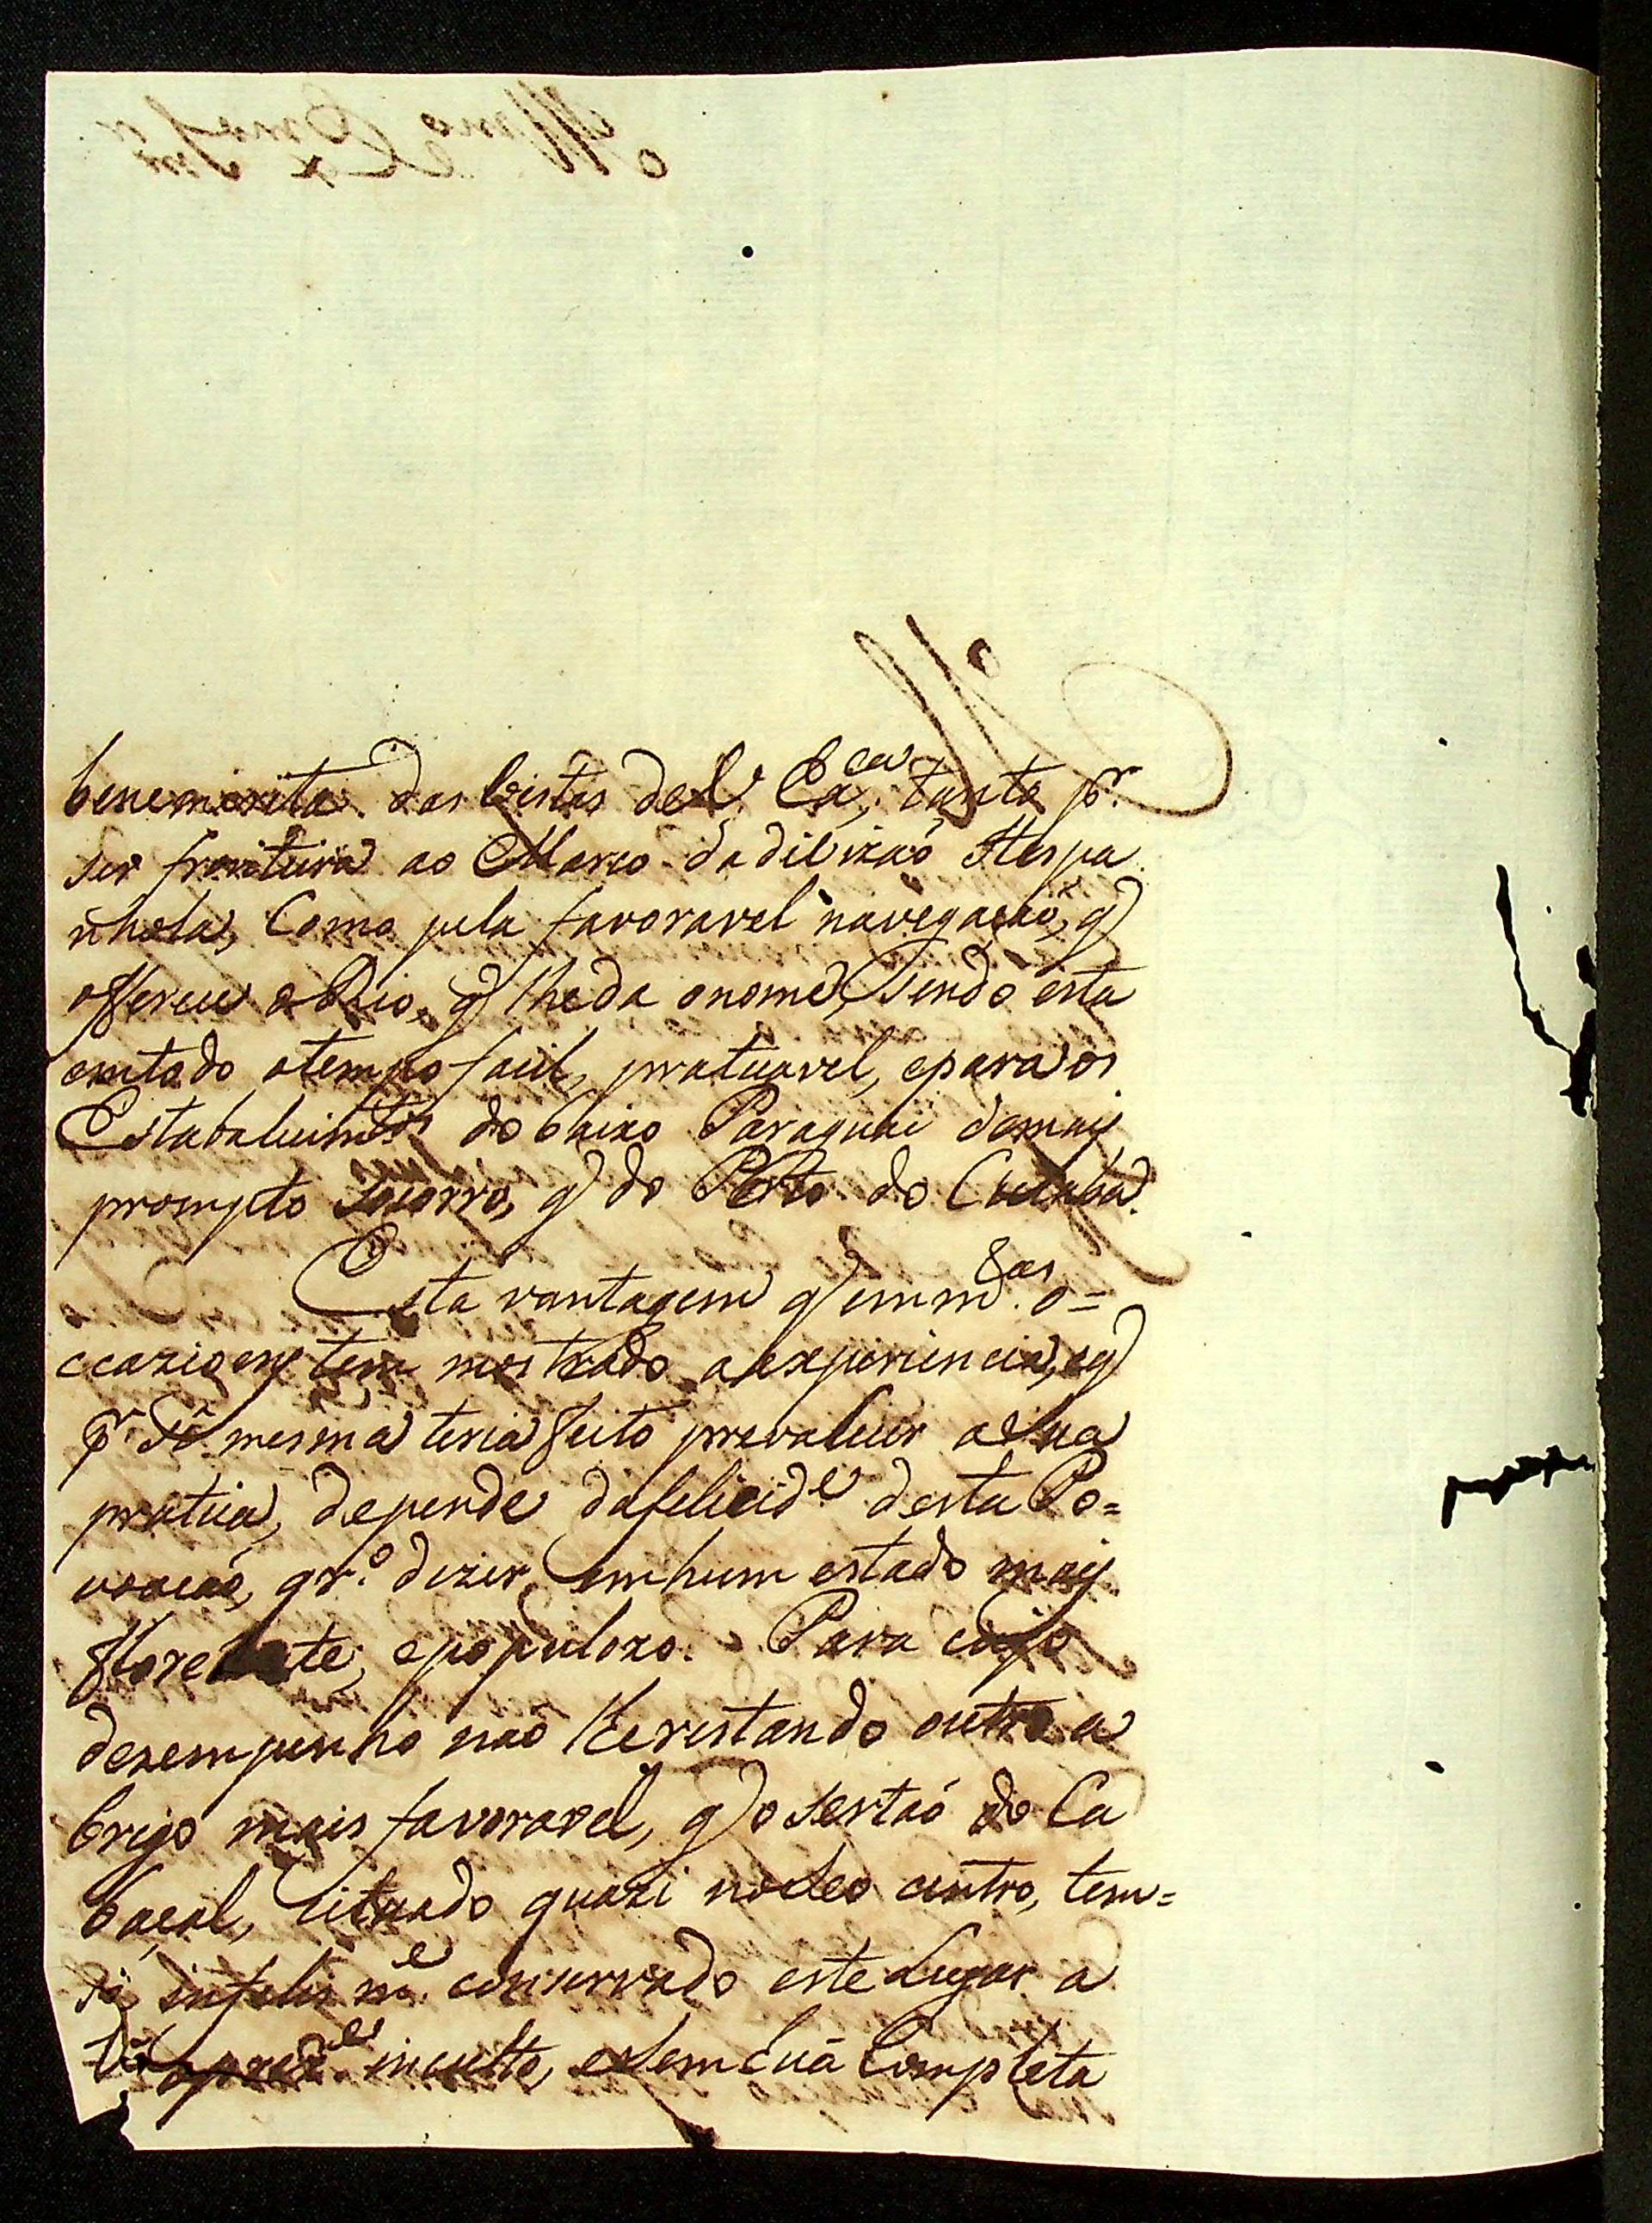 benemerita das vistas de V. Ex.ca, tanto p.r
ser fronteira ao Marco da divizaõ Hespa
nhola, Como pela favoravel navegaçaõ, q
offerece o Rio, q lhe da o nome, sendo esta
em todo o tempo facil, praticavel, e para os
Estabalecim.tos do baixo Paraguai de mais
prompto socorro, q do Porto do Cuiabá.
Esta vantagem q em m.tas o=
ccazioens tem mostrado a experiencia, e q
p.r sí mesma teria feito prevalecer a sua
pratica, depende da felicid.e desta Po=
voacaõ, qr.o dizer, em hum estado mais
florente, e populozo. Para cujo
dezempenho naõ lhe restando outro a
brigo mais favoravel, q o sertaõ do Ca
baçal, situado quazi no seo centro, tem=
se infelism.e conservado este Lugar a
inculto, e sem huã Completa